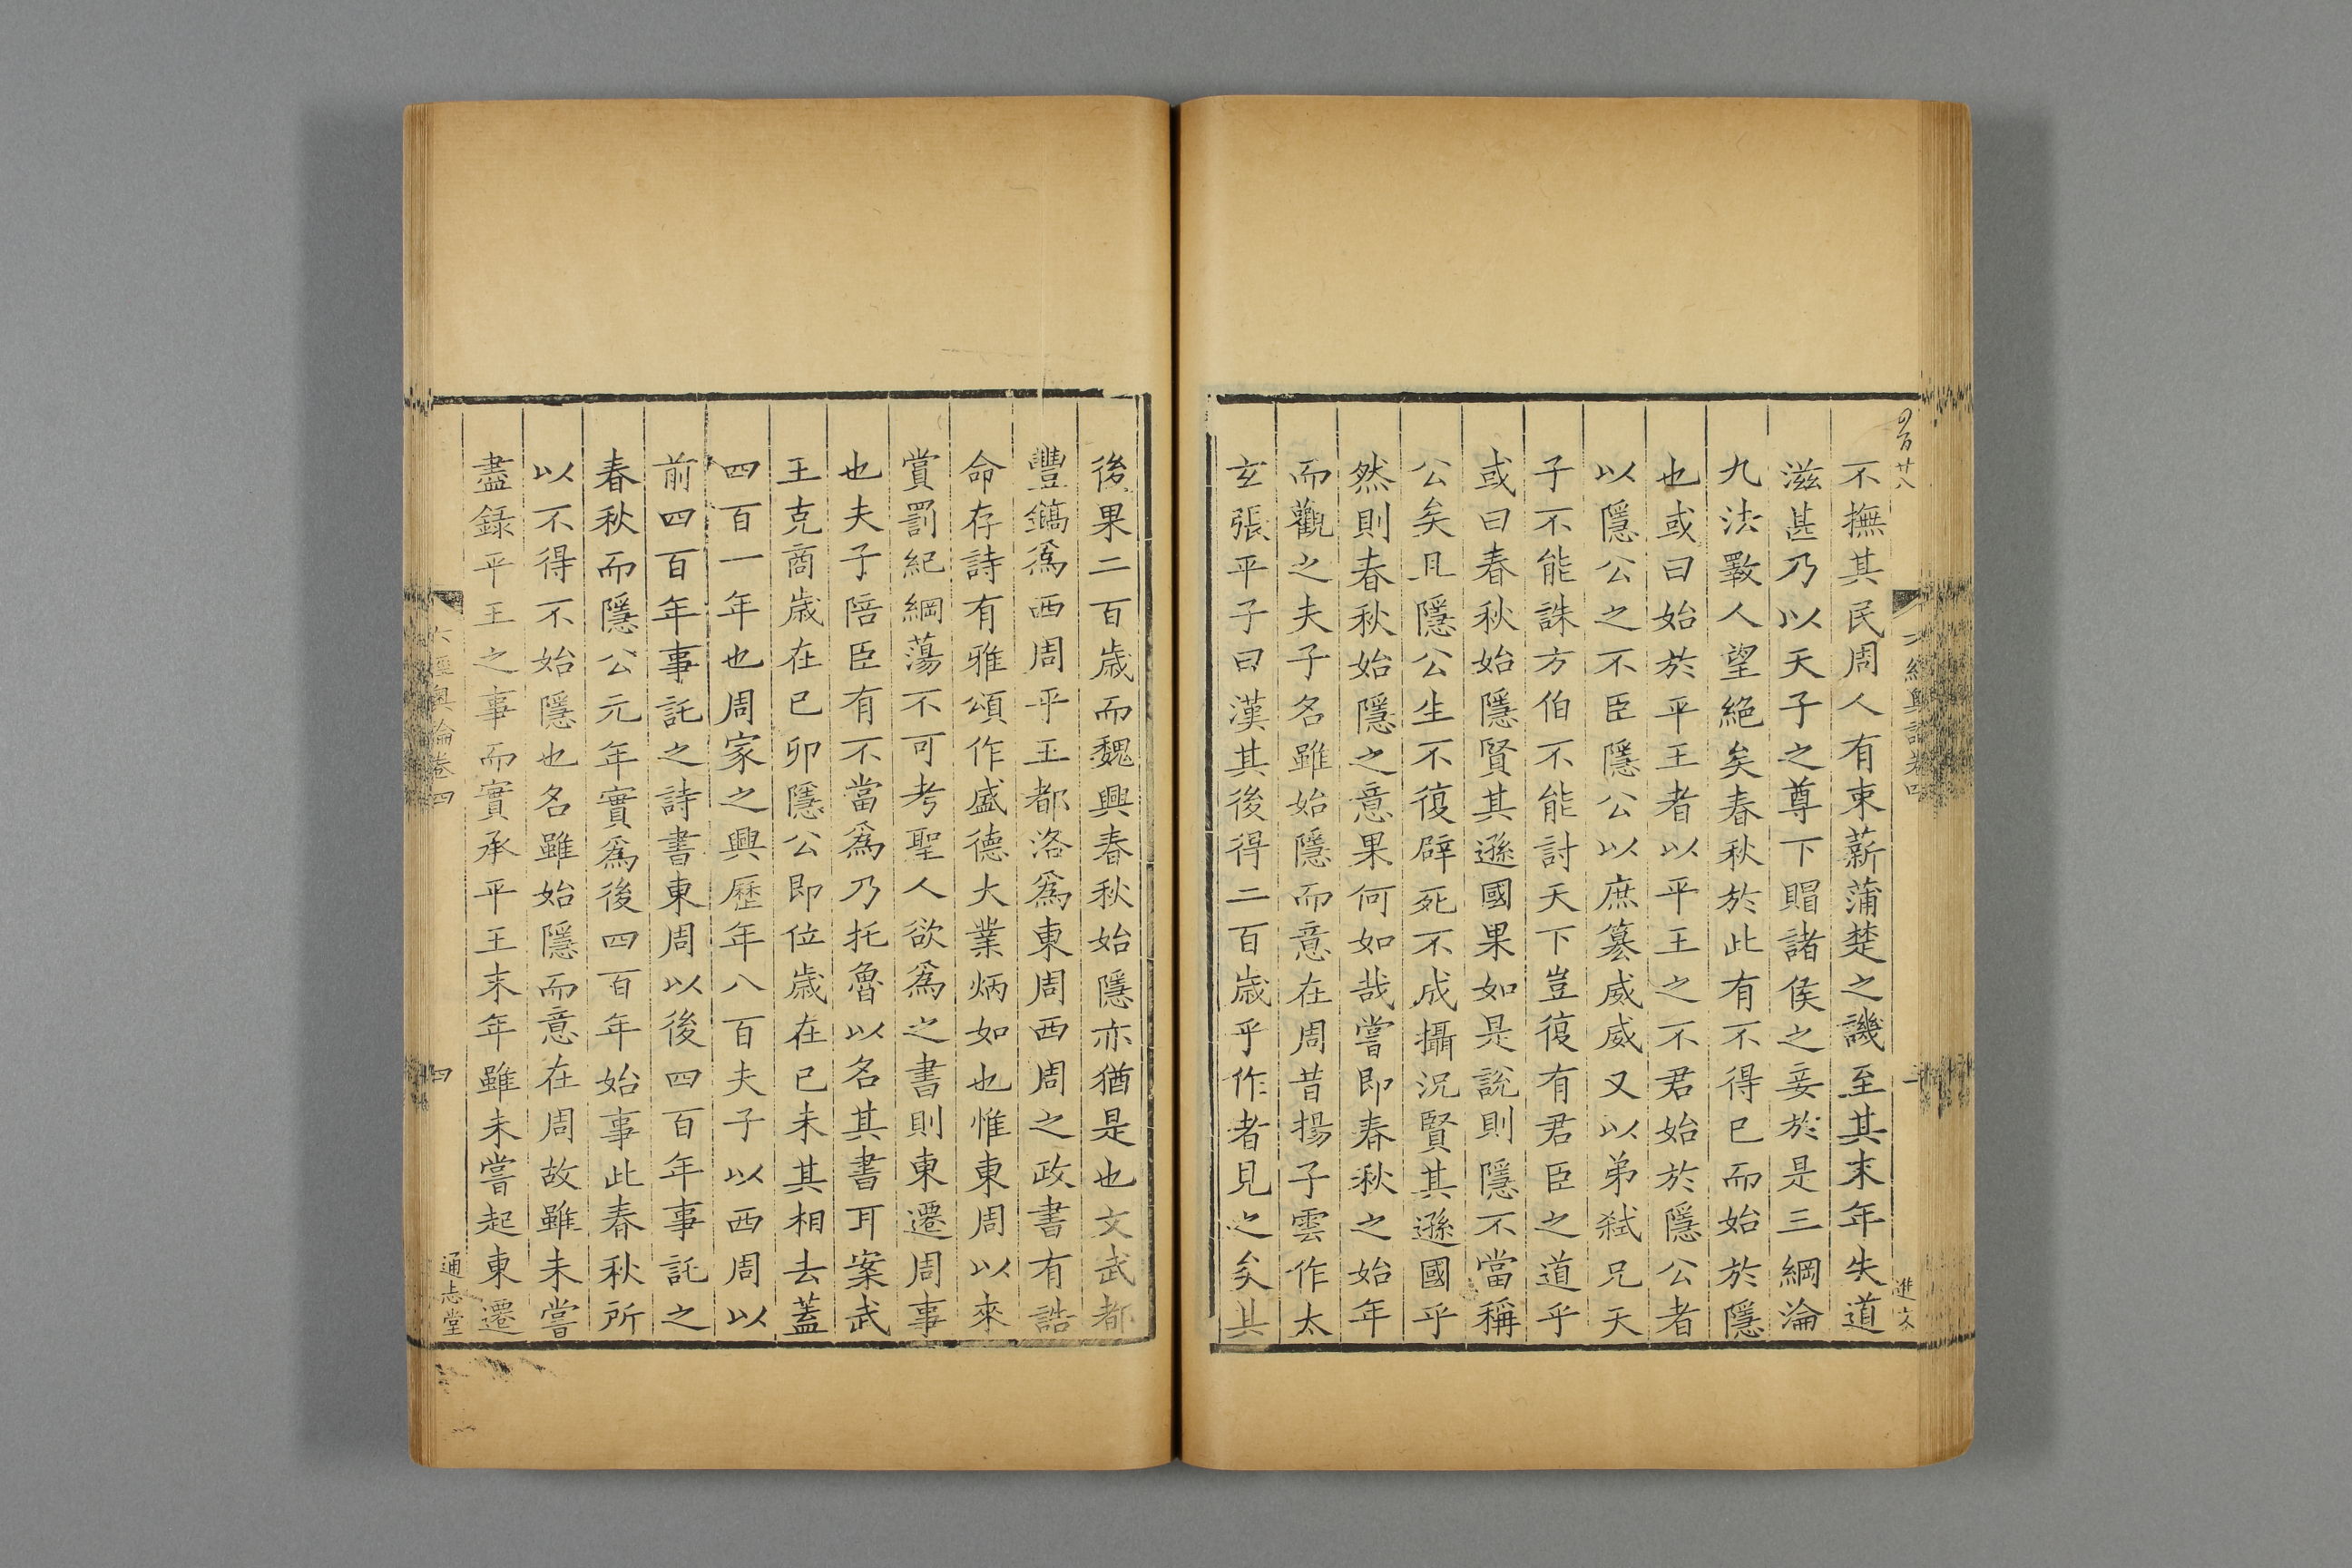 不撫其民周人有束薪蒲楚之譏至其末年失道
滋甚乃以天子之尊下賵諸侯之妾於是三綱淪
九法斁人望絕矣春秋於此有不得已而始於隱
也或曰始於平王者以平王之不君始於隱公者
以隱公之不臣隱公以庶簒威威又以弟弑兄天
子不能誅方伯不能討天下豈復有君臣之道乎
或曰春秋始隱賢其遜國果如是說則隱不當稱
公矣且隱公生不復辟死不成攝況賢其遜國乎
然則春秋始隱之意果何如哉嘗即春秋之始年
而觀之夫子名雖始隱而意在周昔揚子雲作太
玄張平子曰漢其後得二百歲乎作者見之矣其
後果二百歲而魏興春秋始隱亦猶是也文武都
豐鎬爲西周平王都洛爲東周西周之政書有誥
命存詩有雅頌作盛德大業炳如也惟東周以來
賞罰紀綱蕩不可考聖人欲爲之書則東遷周事
也夫子陪臣有不當爲乃托魯以名其書耳案武
王克商歲在已卯隱公即位歲在已未其相去蓋
四百一年也周家之興歷年八百夫子以西周以
前四百年事託之詩書東周以後四百年事託之
春秋而隱公元年實爲後四百年始事此春秋所
以不得不始隱也名雖始隱而意在周故雖未嘗
盡録平王之事而實承平王末年雖未嘗起東遷
六經奧論卷四
四
通志堂